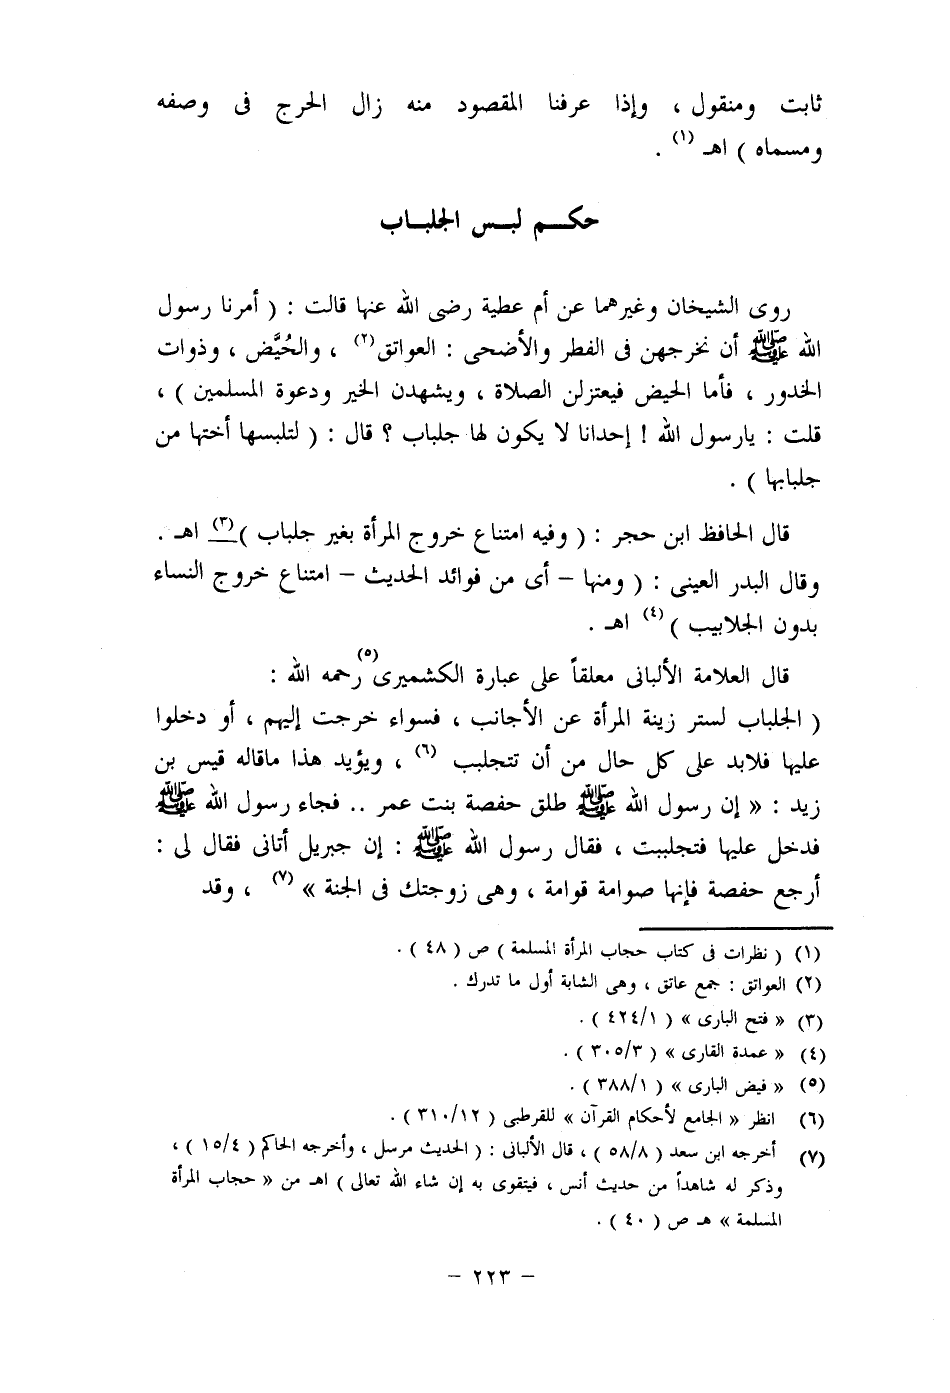 ثابت ومنقول ، وإذا عرفنا المقصود منه زال الحرج فى وصفه
ومسماه ) اهـ (١) .
حكـــم لبــس الجلبــاب
روى الشيخان وغيرهما عن أم عطية رضى الله عنها قالت : ( أمرنا رسول
الله ﷺ أن نخرجهن فى الفطر والأضحى : العواتق(٢) ، والحُيَّض ، وذوات
الخدور ، فأما الحيض فيعتزلن الصلاة ، ويشهدن الخير ودعوة المسلمين ) ،
قلت : يارسول الله ! إحدانا لا يكون لها جلباب ؟ قال : ( لتلبسها أختها من
جلبابها ) .
قال الحافظ ابن حجر : ( وفيه امتناع خروج المرأة بغير جلباب )(٣) اهـ .
وقال البدر العينى : ( ومنها – أى من فوائد الحديث – امتناع خروج النساء
بدون الجلابيب )(٤) اهـ .
قال العلامة الألبانى معلقاً على عبارة الكشميرى(٥) رحمه الله :
( الجلباب لستر زينة المرأة عن الأجانب ، فسواء خرجت إليهم ، أو دخلوا
عليها فلابد على كل حال من أن تتجلبب (٦) ، ويؤيد هذا ماقاله قيس بن
زيد : « إن رسول الله ﷺ طلق حفصة بنت عمر .. فجاء رسول الله ﷺ
فدخل عليها فتجلببت ، فقال رسول الله ﷺ : إن جبريل أتانى فقال لى :
أرجع حفصة فإنها صوامة قوامة ، وهى زوجتك فى الجنة » (٧) ، وقد
(١) ( نظرات فى كتاب حجاب المرأة المسلمة ) ص ( ٤٨ ) .
(٢) العواتق : جمع عاتق ، وهى الشابة أول ما تدرك .
(٣) « فتح البارى » ( ٤٢٤/١ ) .
(٤) « عمدة القارى » ( ٣٠٥/٣ ) .
(٥) « فيض البارى » ( ٣٨٨/١ ) .
(٦) انظر « الجامع لأحكام القرآن » للقرطبى ( ٣١٠/١٢ ) .
(٧) أخرجه ابن سعد ( ٥٨/٨ ) ، قال الألبانى : ( الحديث مرسل ، وأخرجه الحاكم ( ١٥/٤ ) ،
وذكر له شاهداً من حديث أنس ، فيتقوى به إن شاء الله تعالى ) اهـ من « حجاب المرأة
المسلمة » هـ ص ( ٤٠ ) .
– ٢٢٣ –